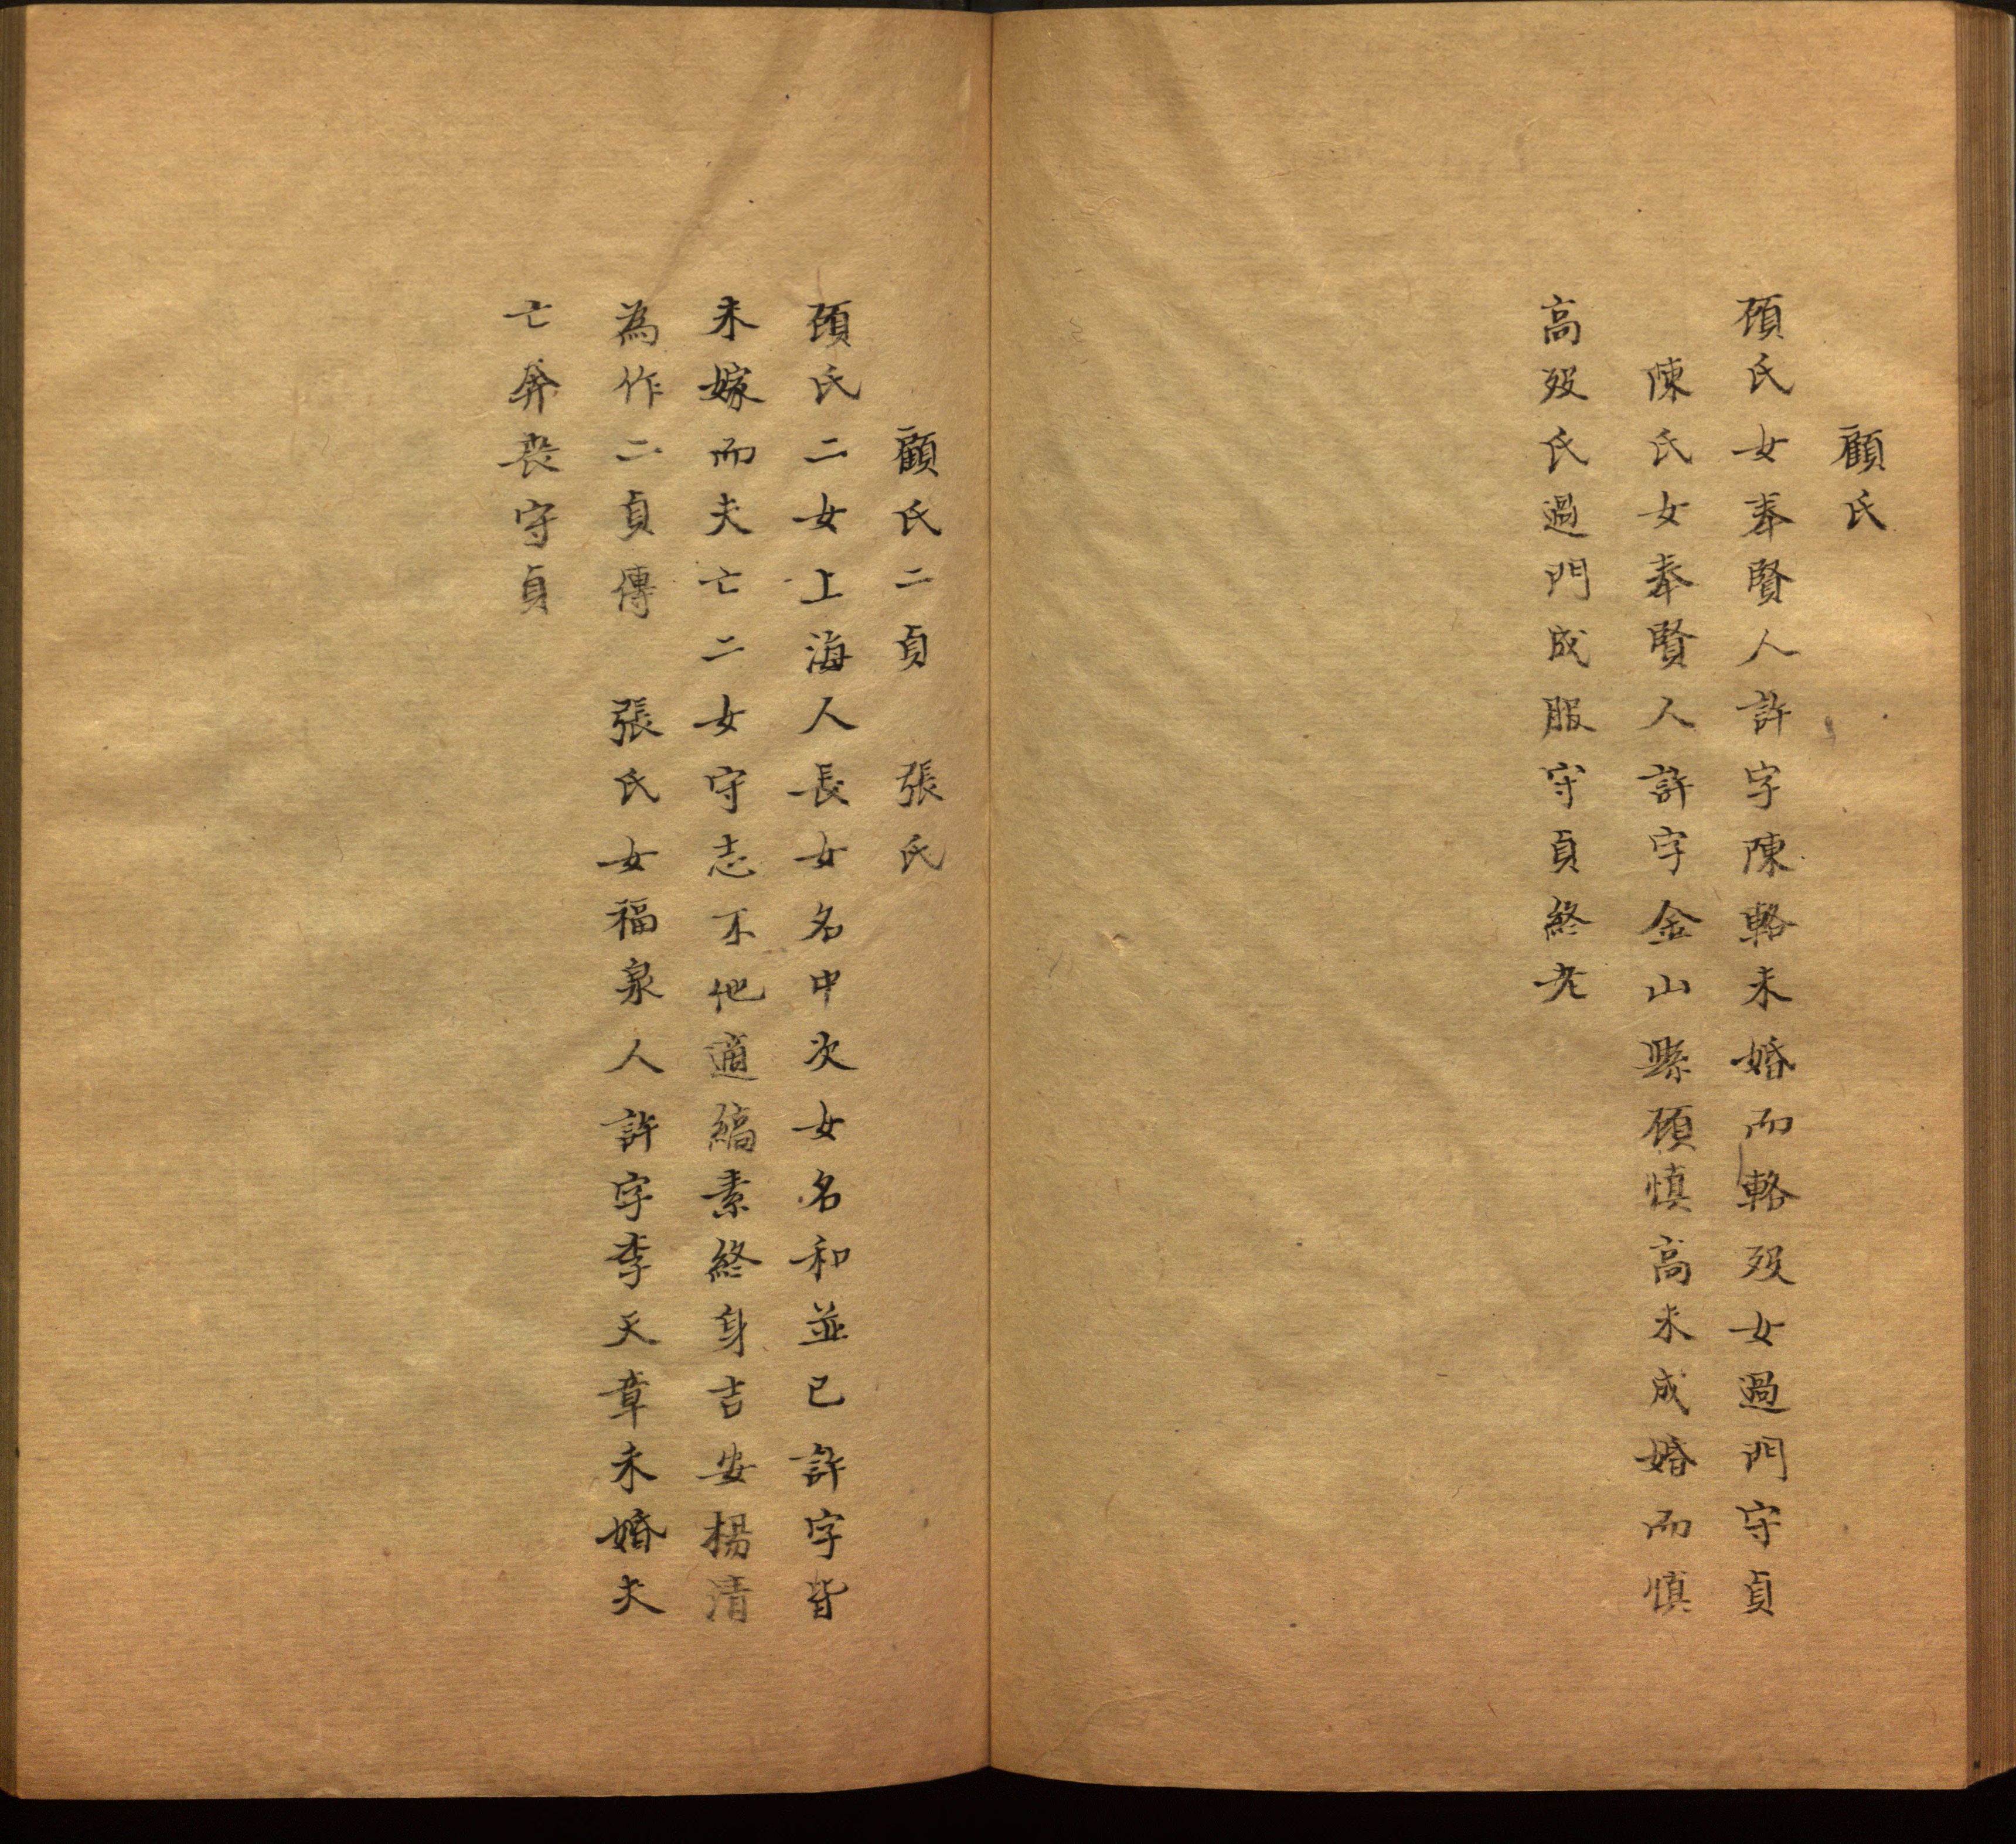 顧氏
頋氏女奉賢人許字陳輅未婚而輅歿女過門守貞
陳氏女奉賢人許字金山縣頋慎高未成婚而慎
高歿氏過門成服守貞終老
顧氏二貞　張氏
頋氏二女上海人長女名中次女名和並已許字皆
未嫁而夫亡二女守志不他適縞素終身吉安楊清
為作二貞傳　張氏女福泉人許字李天章未婚夫
亡奔喪守貞